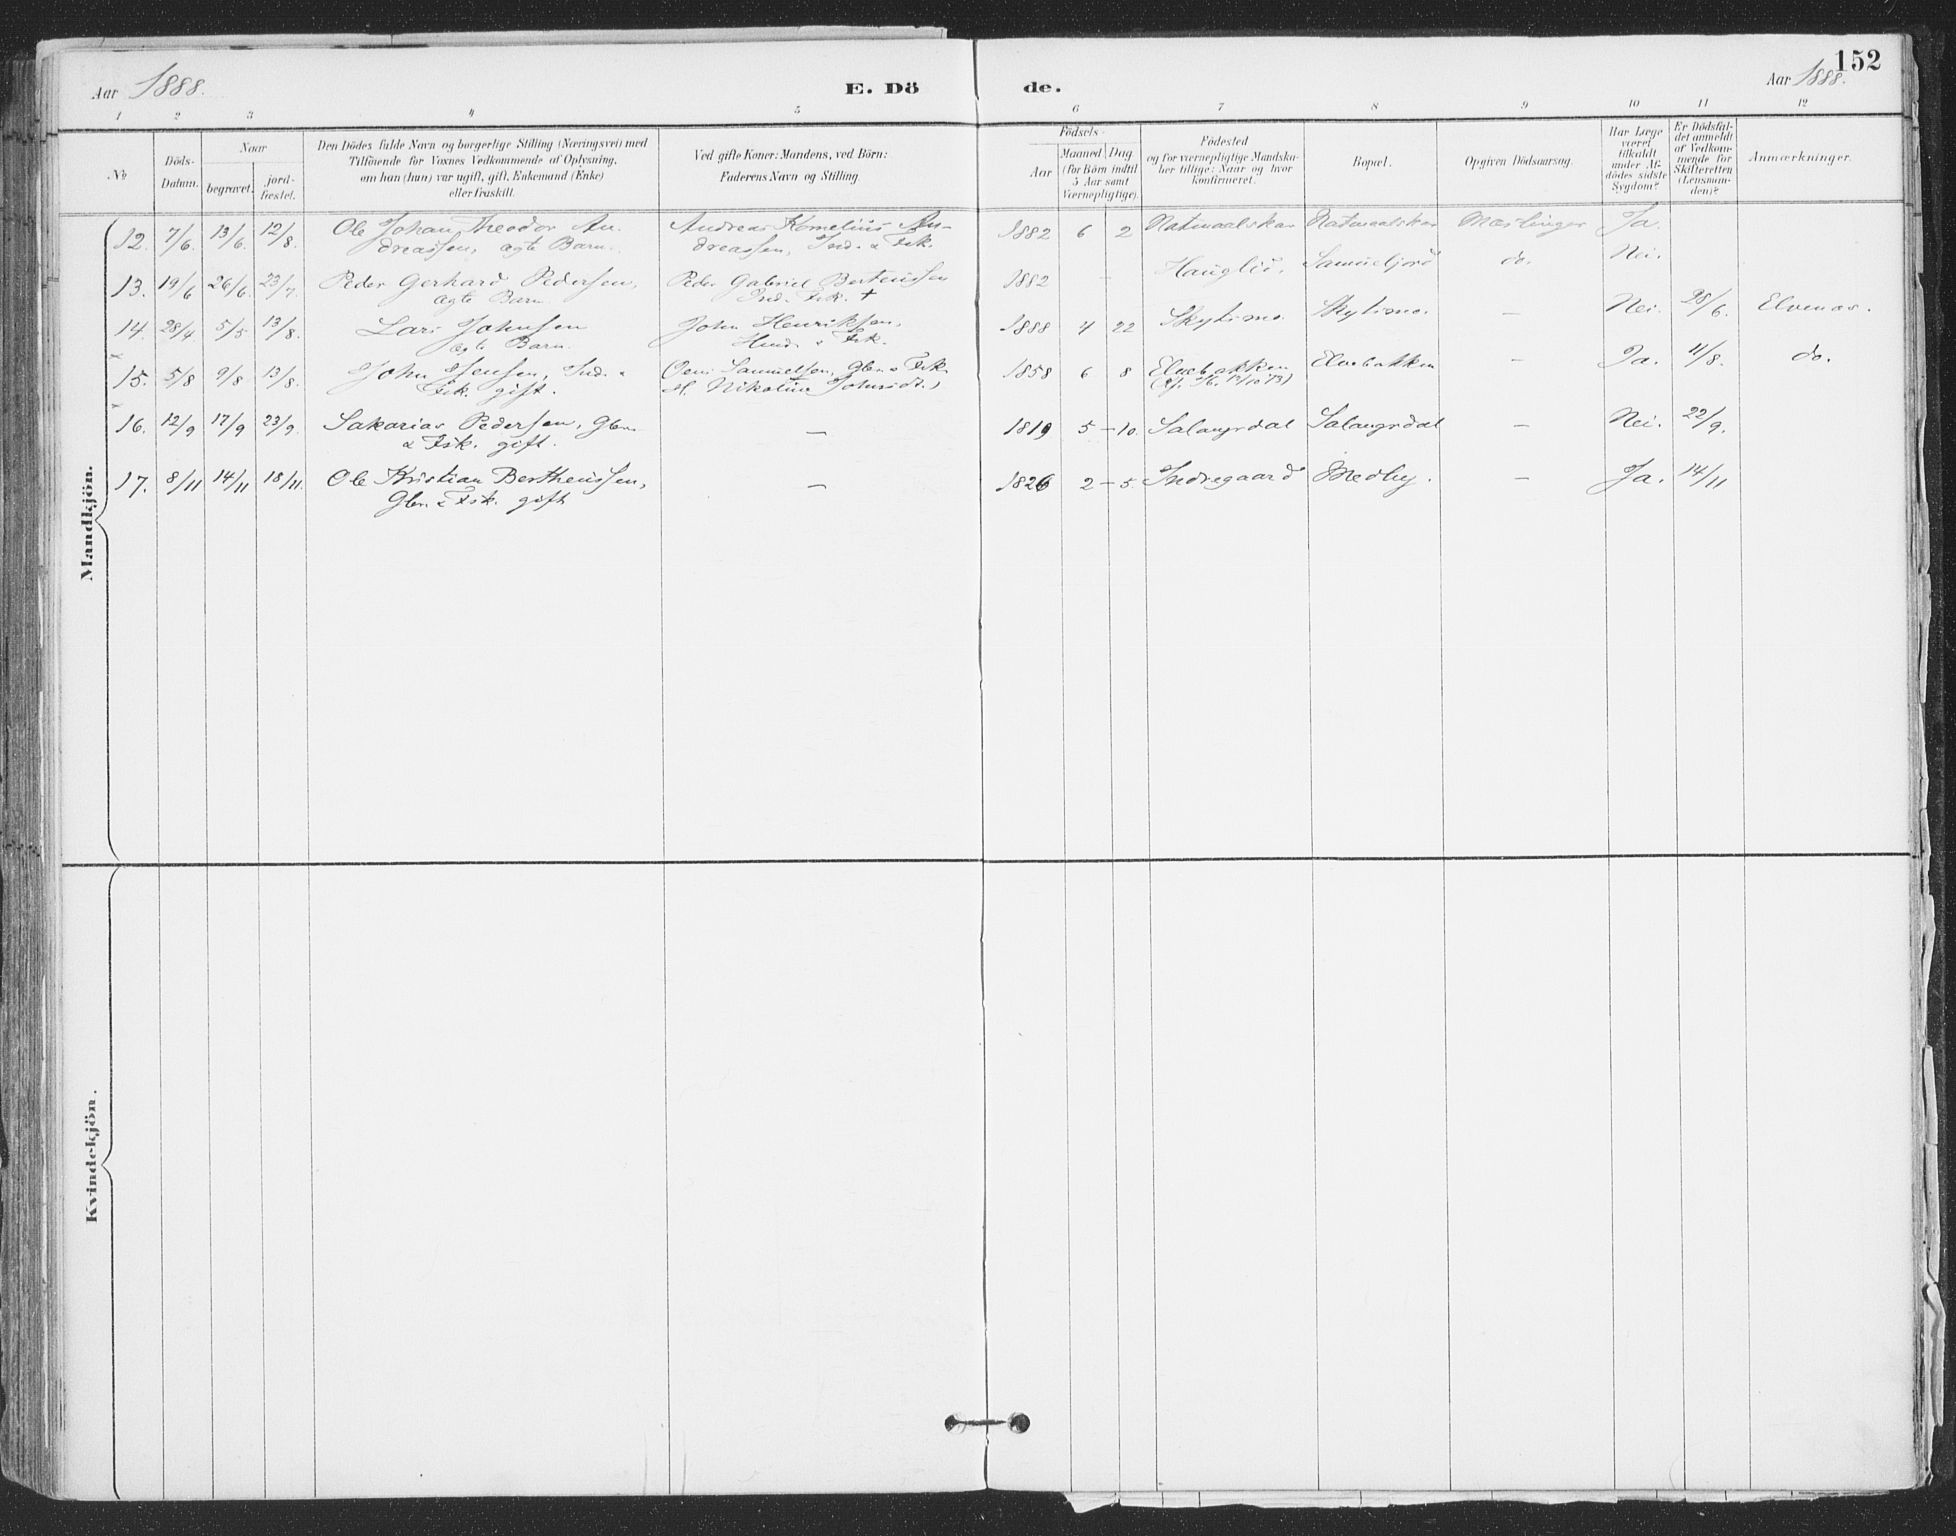 152
Aar 1888.
E. Dö
de.
Aar 1888.
1 2 3 4 5 6 7 8 9 10 11 12
No
Döds-
Datum.
Naar
begravet.
jord-
fæstet.
Den Dödes fulde Navn og borgerlige Stilling (Næringsvei) med
Tilföiende for Voxnes Vedkommende af Oplysning,
om han (hun) var ugift, gift, Enkemand (Enke)
eller fraskilt.
Ved gifte Koner: Mandens, ved Börn:
Faderens Navn og Stilling.
Födsels-
Aar
Maaned Dag
(for Börn indtil
5 Aar samt
Værnepligtige).
Födested
og for værnepligtige Mandska-
ber tillige: Naar og hvor
konfirmeret.
Bopæl.
Opgiven Dödsaarsag.
Har Læge
været
tilkaldt
under Af-
dödes sidste
Sygdom?
Er Dödsfal-
det anmeldt
af Vedkom-
mende for
Skifteretten
(Lensman-
den)?
Anmærkninger.
Mandkjön.
12. 7/6. 13/6. 12/8. Ole Johan Theodor An-
dreassen, ægte Barn. Andreas Kornelius An-
dreassen, Ind. & Fsk. 1882 6 2 Natmaalskar Natmaalskar Mæslinger Ja.
13. 19/6 26/6. 23/7. Peder Gerhard Pedersen,
ægte Barn. Peder Gabriel Berteussen
Ind. Fsk. + 1882 – Hauglid. Samueljord do. Nei.
14. 28/4 5/5 13/8. Lars Johnsen
ægte Barn. John Henriksen,
& Fsk. 1888 4 22 – Nei. 28/6. Elvenæs.
15. 5/8 9/8 13/8. John Jensen, Ind. &
Fsk. gift. Samuelsen, Gbr. & Fsk.
Nikoline 1858 6 8 Elvebakken
Elvebakken – Ja. 11/8. do.
16. 12/9 17/9 23/9. Sakarias Pedersen, Gbr.
& Fsk. gift. — 1819 5 – 10 Salangsdal Salangsdal – Nei. 22/9.
17. 8/11 14/11 18/11. Ole Kristian Bertheussen,
Gbr. & Fsk. gift — 1826 2 – 5. Indregaard Medby. – Ja. 14/11
Kvindekjön.